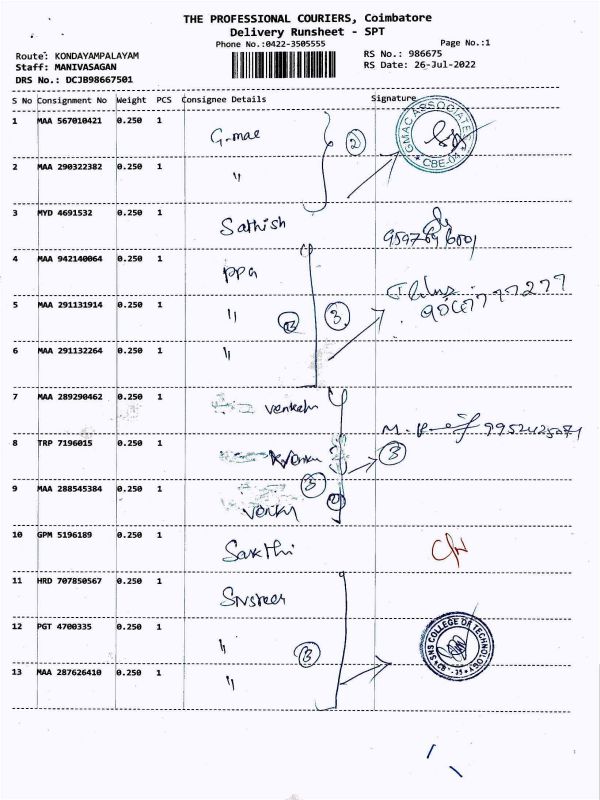 THE PROFESSIONAL COURIERS, Coimbatore
Delivery Runsheet - SPT
Phone No.:0422-3505555
Page No.:1
Route: KONDAYAMPALAYAM
Staff: MANIVASAGAN
DRS No.: DCJB98667501
RS No.: 986675
RS Date: 26-Jul-2022
S No Consignment No Weight PCS Consignee Details Signature
1 MAA 567010421 0.250 1 G.mac
GMAC ASSOCIATES CBE-04
2
2 MAA 290322382 0.250 1 "
3 MYD 4691532 0.250 1 Sathish
4 MAA 942140064 0.250 1 PPG
5 MAA 291131914 0.250 1 " 3
6 MAA 291132264 0.250 1 "
7 MAA 289290462 0.250 1 venkatn
M. 9952425071
8 TRP 7196015 0.250 1 Venku 3
9 MAA 288545384 0.250 1 Venku 3
10 GPM 5196189 0.250 1 Sakthi
11 HRD 707850567 0.250 1 Snsteer
12 PGT 4700335 0.250 1 " 3
SNS COLLEGE OF TECHNOLOGY CB -35
13 MAA 287626410 0.250 1 "